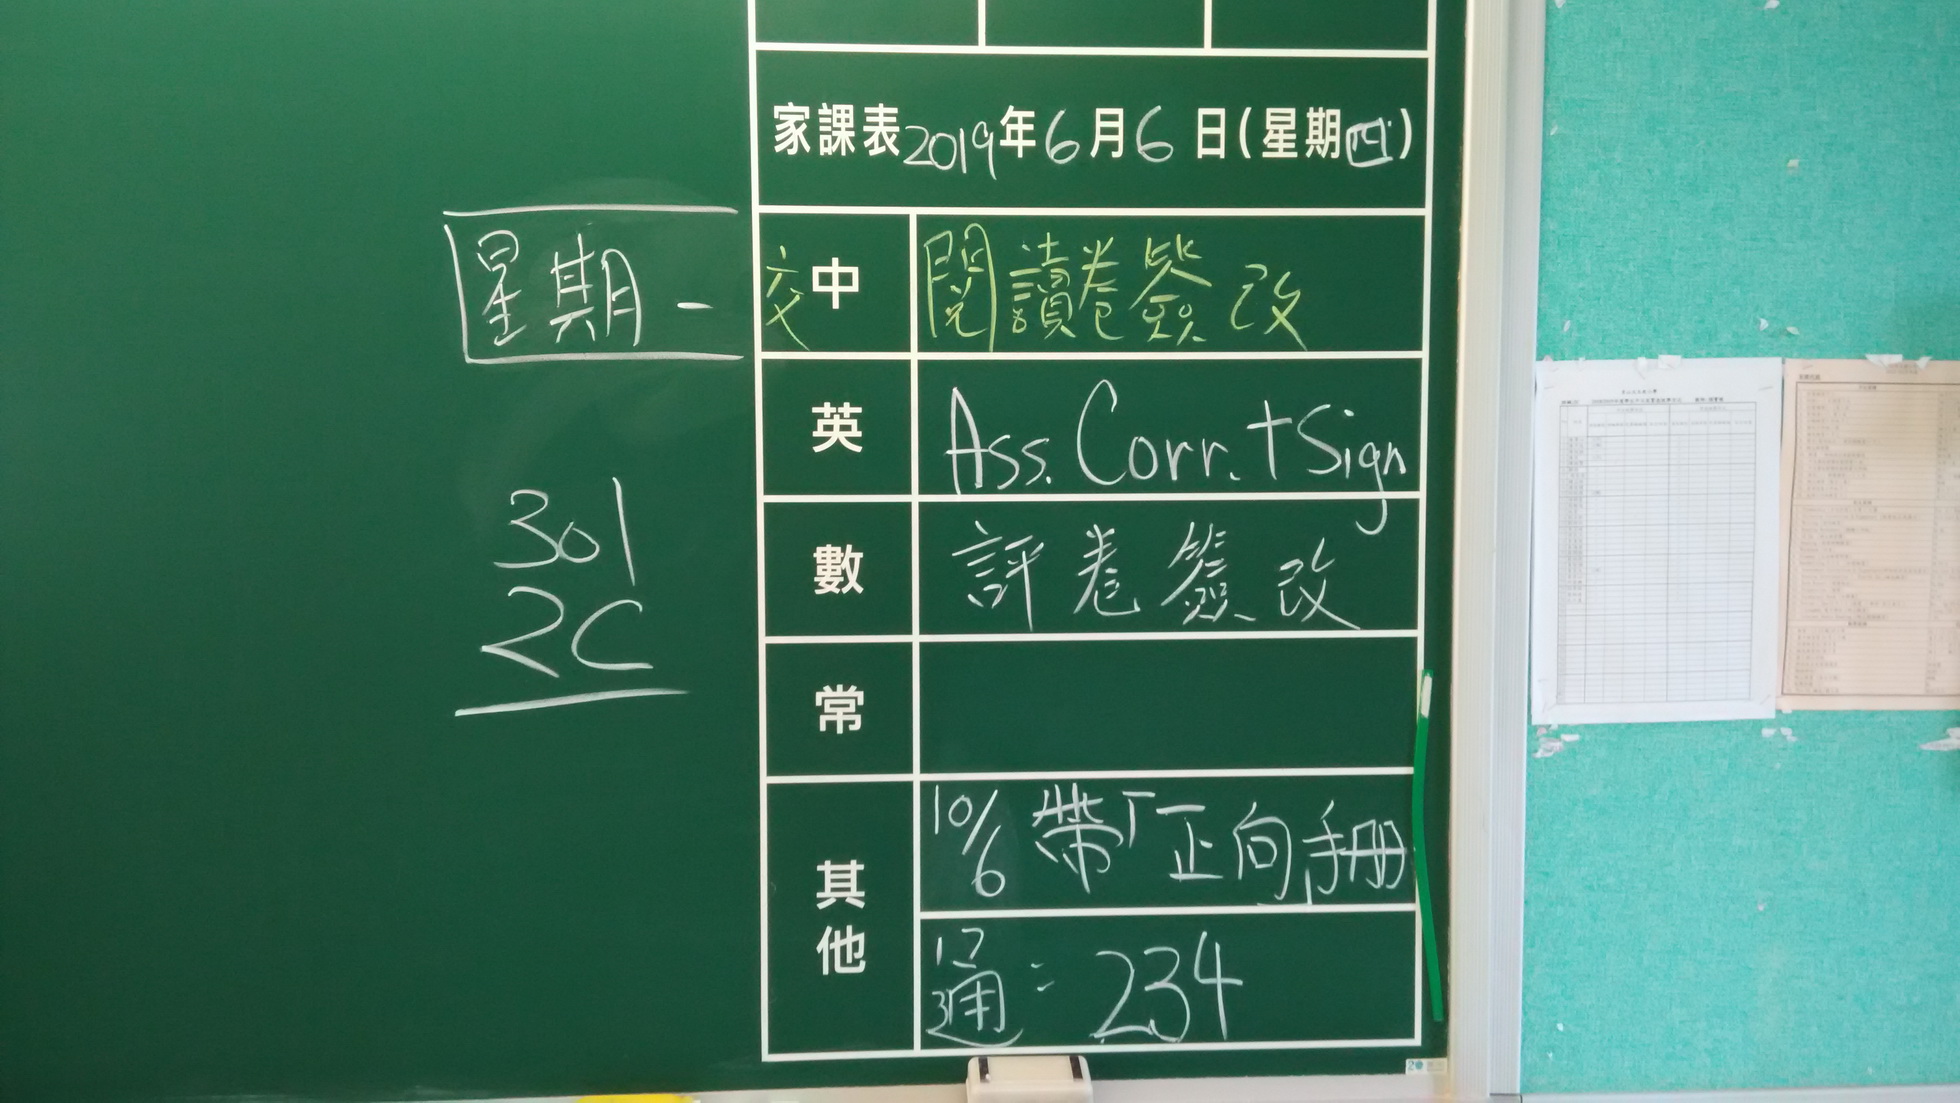 家課表2019年6月6日(星期四)
星期一
交 中 閱讀卷簽改
英 Ass. Corr. + Sign
301
數 評卷簽改
2C
常
其他
10/6 帶「正向手冊
通: 234